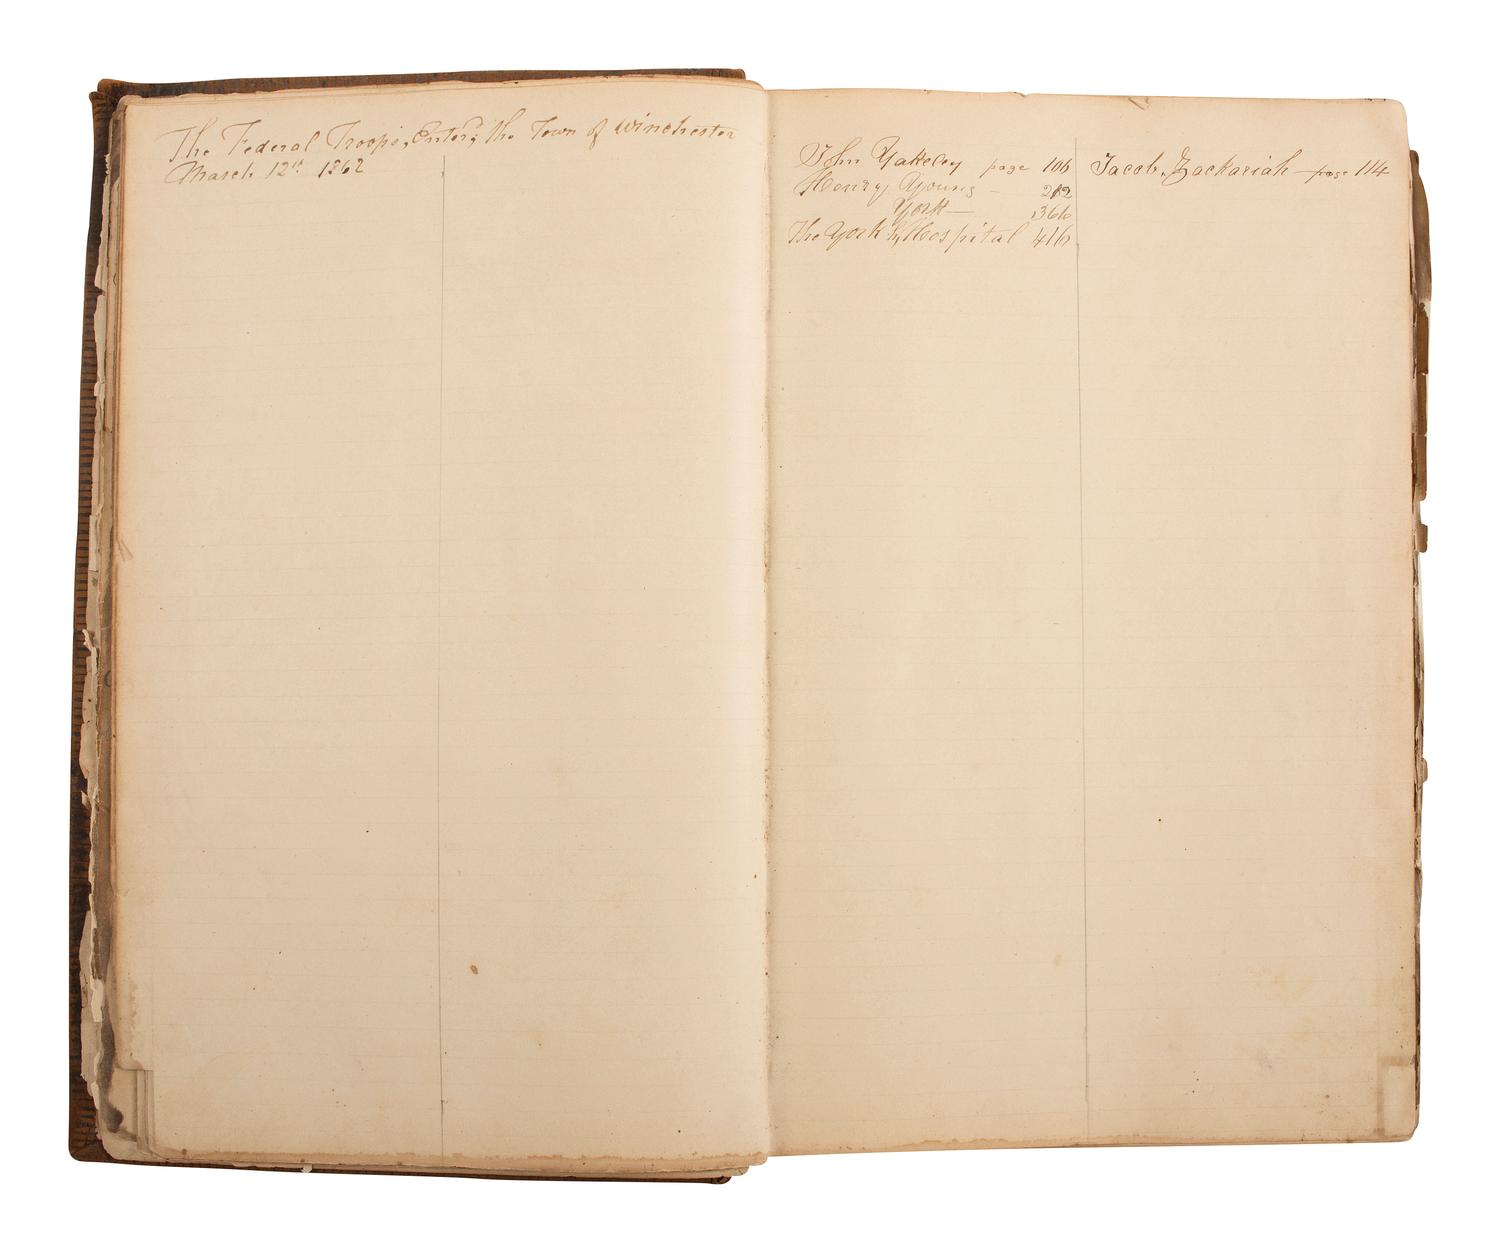 The Federal Troops, Enterg the Town of Winchester
March 12th 1862
John Yakeley page 106
Henry Young - 202
York — 366
The York Hospital 416
Jacob. Zackariah — page 114